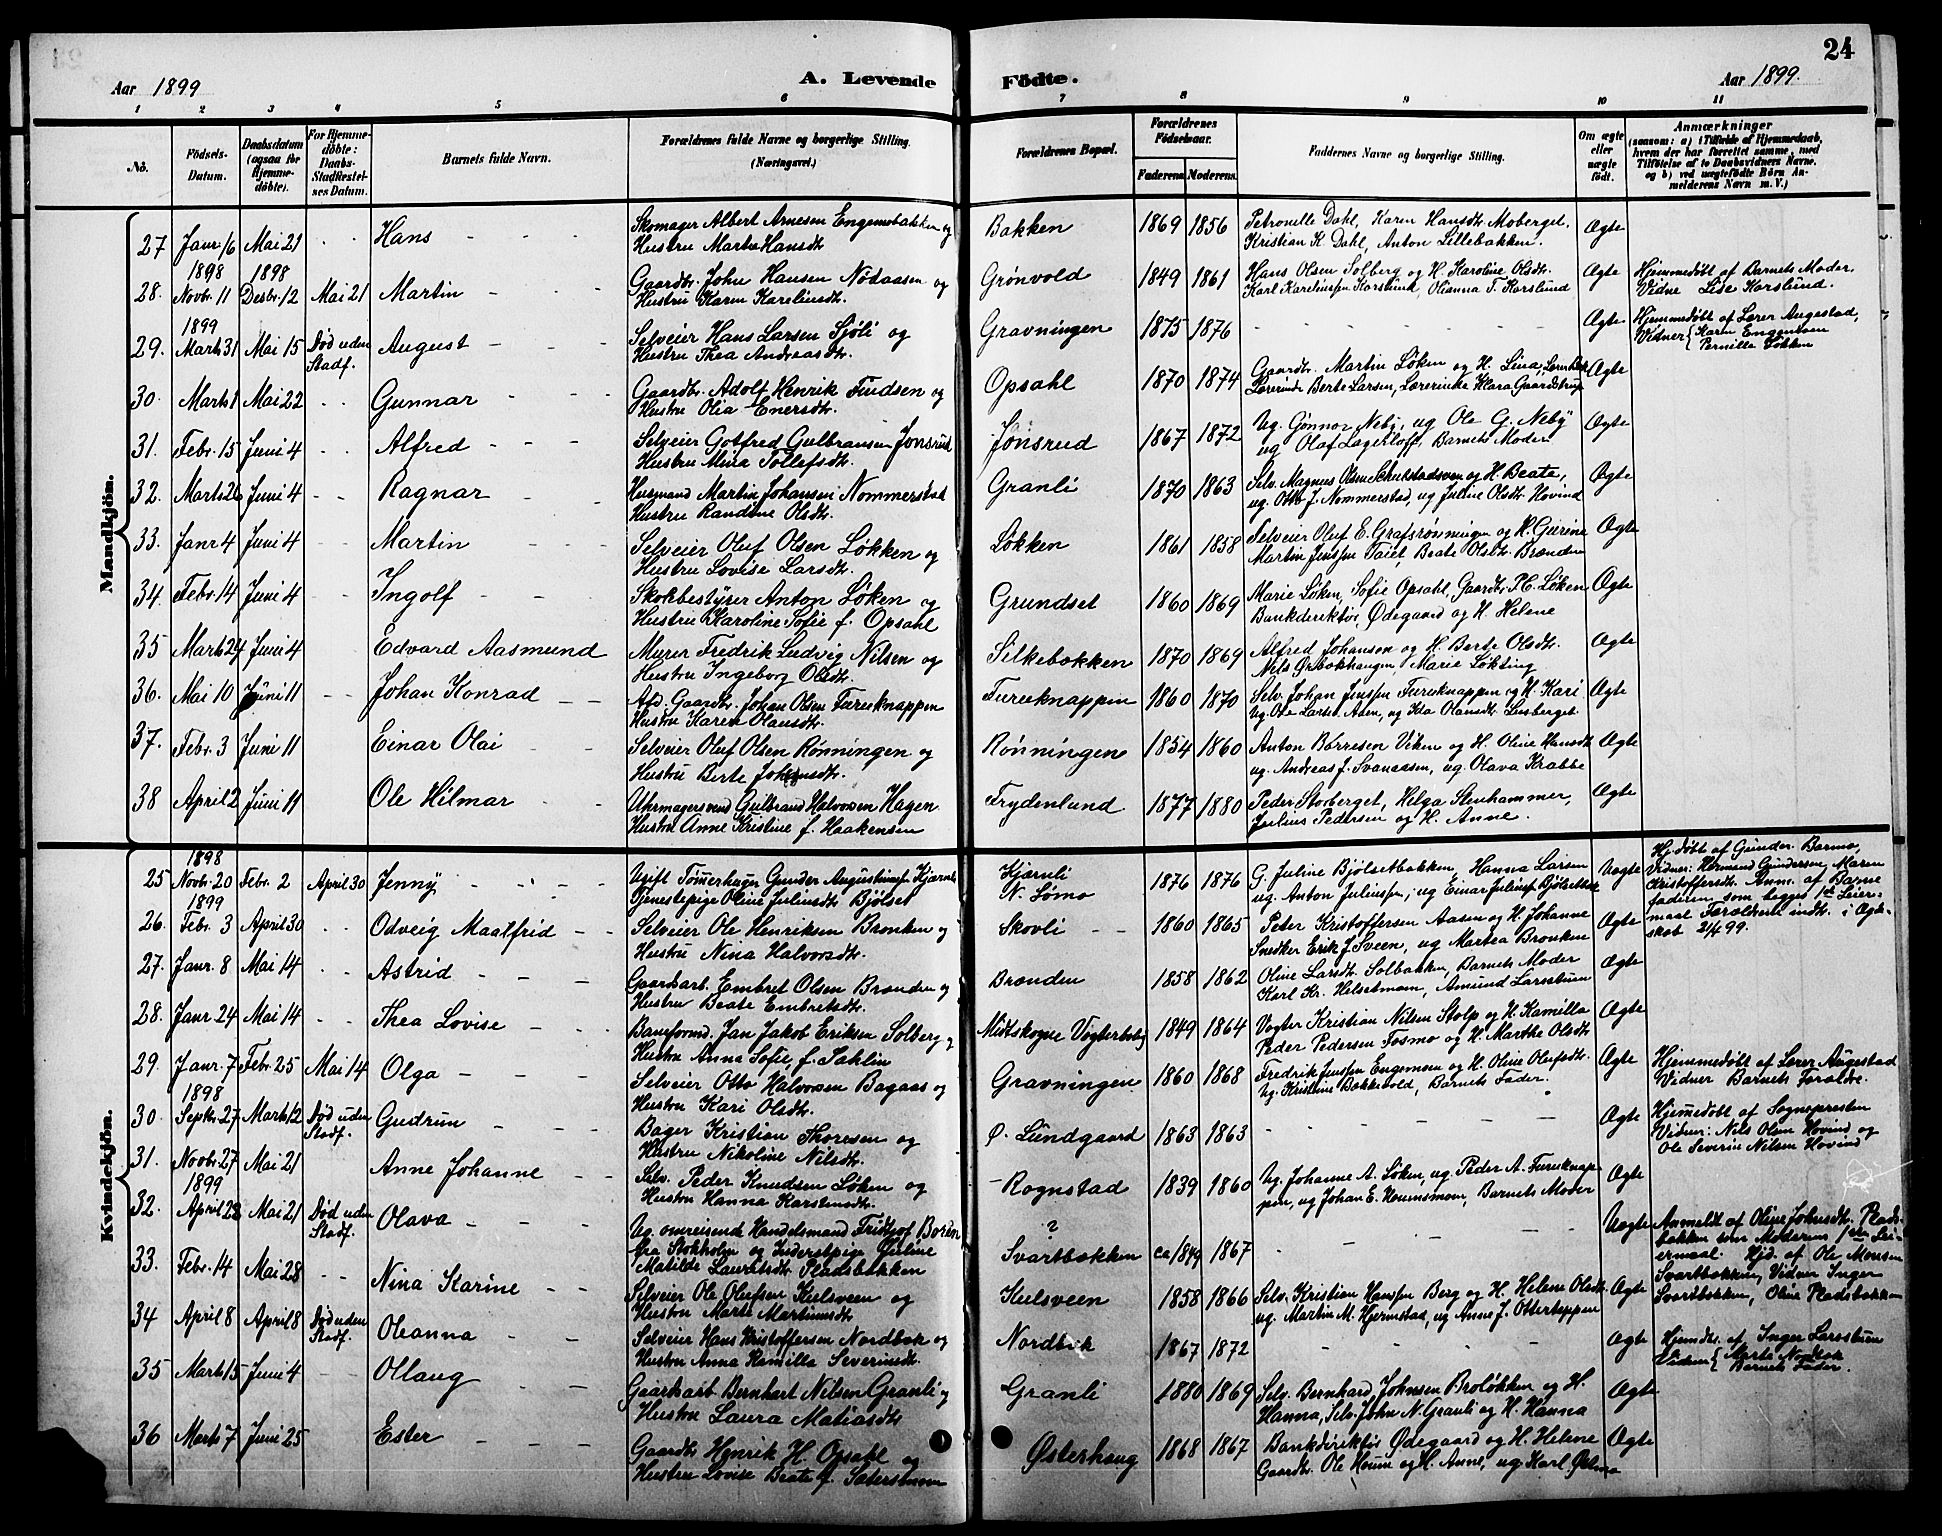 24
Aar 1899 A. Levende Födte. Aar 1899.
1 2 3 4 5 6 7 8 9 10 11
No. Födsels-Datum. Daabsdatum (ogsaa for Hjemmedöbte). For Hjemmedöbte: Daabs-Stadfæstelses Datum. Barnets fulde Navn. Forældrenes fulde Navne og borgerlige Stilling. (Næringsvei.) Forældrenes Bopæl. Forældrenes Födselsaar. Faderens Moderens Faddernes Navne og borgerlige Stilling. Om ægte eller uægte födt. Anmærkninger
Mandkjön.
27 Janr. 16 Mai 21 Hans Skomager Albert Arnesen Engemobakken og Bakken 1869 1856 Petronelle Dahl, Karen Hansdtr. Moberget, Ægte
Hustru Marthe Hansdtr. Kristian K. Dahl, Anton Lillebakken.
1898 1898
28. Novbr. 11 Desbr. 12 Mai 21 Martin Gaardbr. John Hansen Nödaasen og Grönvold 1849 1861 Hans Olsen Solberg og H. Karoline Olsdtr. Ægte Hjemmedöbt af Barnets Moder.
Hustru Karen Karelinsdtr. Vidne Lise Korslund.
1899
29. Marts 31 Mai 15 Död uden Stadf. August Selveier Hans Larsen Sjöli og Gravningen 1875 1876 Ægte Hjemmedöbt af Lærer Augestad,
Hustru Thea Andreasdtr. Vidner Karen Engemoen
Pernille Lökken
30. Marts 1 Mai 22 Gunnar Gaardbr. Adolf Henrik Findsen og Opsahl 1870 1874 Gaardbr. Martin Löken og H. Lina, Ægte
Hustru Olia Enersdtr. Lærerinde Berte Larsen, Lærerinde Klara Gaardstrup
31. Febr. 15 Juni 4 Alfred Selveier Gotfred Gulbransen Jonsrud Jönsrud 1867 1872 Ug. Gönnor Neby, ug Ole G. Neby Ægte
Hustru Mina Tollefsdtr. ug Olaf Lagerloff, Barnets Moder
32. Marts 26 Juni 4 Ragnar Husmand Martin Johansen Nommerstad Granli 1870 1863 Selv. Magnus Olsen og H. Beate, Ægte
Hustru Randine Olsdtr. ug. Otto J. Nommerstad, ug Juline Olsdtr. Hovind
33. Janr 4 Juni 4 Martin Selveier Oluf Olsen Lökken og Lökken 1861 1858 Selveier Oluf E. Grafsrönningen og H. Gurine Ægte
Hustru Lovise Larsdtr. Martin Jenssen Taiet, Beate Olsdtr. Brænden
34. Febr. 14 Juni 4 Ingolf Skokbestyrer Anton Löken og Grundset 1860 1869 Marie Löken, Sofie Opsahl, Gaardbr. P.C. Löken Ægte
Hustru Karoline Sofie f. Opsahl Bankdirektör Ödegaard og H. Helene
35 Marts 24 Juni 4 Edvard Aasmund Murer Fredrik Ludvig Nilsen og Silkebakken 1870 1869 Alfred Johansen og H. Berte Olsdtr. Ægte
Hustru Ingeborg Olsdtr. Nils Grebakhaugen, Marie Lökting
36. Mai 10 Juni 11 Johan Konrad Afd. Gaardbr. Johan Olsen Furuknappen Furuknappen 1860 1870 Selv. Johan Jenssen Furuknappen og H. Kari Ægte
Hustru Karen Olansdtr. Ug. Ole Larsen Aasen, ug Ida Olansdtr. Lusberget
37. Febr. 3 Juni 11 Einar Olai Selveier Oluf Olsen Rönningen og Rönningen 1854 1860 Anton Börresen Viken og H. Oline Hansdtr. Ægte
Hustru Berte Johansdtr. ug. Andreas J. Svanaasen, ug. Olava Krabbe
38 April 2 Juni 11 Ole Hilmar Uhrmagersvend Gulbrand Halvorsen Hagen Frydenlund 1877 1880 Peder Storberget, Helga Stenhammer, Ægte
Hustru Anne Kristine f. Haakensen Julius Pedersen og H. Anne.
Kvindekjön.
1898
25 Novbr. 20 Febr. 2 April 30 Jenny Ugift Tömmerhugger Gunder Augustinusen Hjærnli Kjærnli 1876 1876 G. Juline Bjölsetbakken, Hanna Larsen Uægte Hj.döbt af Gunder Barmo,
Tjenestepige Oline Juliusdtr. Bjölset N. Lömo ug. Anton Juliussen, ug Einar Juliussen Bjölsetbak Vidner: Hermand Gundersen, Maren
Kristoffersdtr. Anm. af Barnefaderen, som begges 1ste Leiermaal Forældrene indtr. i Ægteskab 21/4 99.
1899
26. Febr. 3 April 30 Odveig Maalfrid Selveier Ole Henriksen Bronken og Skovli 1860 1865 Peter Kristoffersen Aasen og H. Johanne Ægte
Hustru Nina Halvorsdtr. Snedker Erik J. Sveen, ug Martea Bronken
27. Janr. 8 Mai 14 Astrid Gaardarb. Embret Olsen Brænden og Brænden 1858 1862 Oline Larsdtr. Solbakken, Barnets Moder Ægte
Hustru Beate Embretsdtr. Karl Kr. Helsetmoen, Amund Larsstuen
28. Janr 24 Mai 14 Thea Lovise Baneformd. Jan Jakob Eriksen Solberg og Midtskogne Vogterbolig 1849 1864 Vogter Kristian Nilsen Stolp og H. Kamilla Ægte
Hustru Anna Sofie, f. Sahlin Peder Pedersen Fosmo og H. Marthe Olsdtr.
29. Janr. 7 Febr. 25 Mai 14 Olga Selveier Otto Halvorsen Bagaas og Gravningen 1860 1868 Fredrik Jenssen Engemoen og H. Oline Olufsdtr. Ægte Hjemmedöbt af Lærer Augestad
Hustru Kari Olsdtr. Ug. Kristine Bakkevold, Barnets Fader. Vidner Barnets Forældre.
1898
30. Septbr. 27 Marts 12 Död uden Stadf. Gudrun Bager Kristian Thoresen og Ö. Lundgaard 1863 1863 Ægte Hjemmedöbt af Sognepresten
Hustru Nikoline Nilsdtr. Vidner: Nils Olsen Hovind og
Ole Severin Nilsen Hovind
31. Novbr. 27 Mai 21 Anne Johanne Selv. Peder Knudsen Löken og Rognstad 1839 1860 Ug. Johanne A. Löken, ug. Peder A. Furuknappen, Ægte
Hustru Hanna Karstensdtr. ug Johan E. Houmsmoen, Barnets Moder
1899
32. April 23 Mai 21 Död uden Stadf. Olava Ug. omreisende Handelsmand Fridtjof Boren ? ca 1849 1867 Uægte Anmeldt af Oline Johnsdtr. Pladsbakken som Moderens 1ste Leiermaal. Hjd. af Ole Monsen
fra Stokholm og Inderstpige Juline Svartbakken Svartbakken, Vidner Inger
Matilde Lauritsdtr. Pladsbakken Svartbakken, Oline Pladsbakken
33. Febr. 14 Mai 28 Nina Karine Selveier Ole Olufsen Kulsveen og Kulsveen 1858 1866 Selv. Kristian Hanssen Berg og H. Helene Olsdtr. Ægte
Hustru Marte Martinusdtr. ug. Martin M. Hjernstad, ug Anne J. Otterteppen
34 April 8 April 8 Död uden Stadf. Oleanna Selveier Hans Kristoffersen Nordbak og Nordbak 1867 1872 Ægte Hjemdbt. af Inger Larsstuen
Hustru Anna Kamilla Severinsdtr. Vidner Marte Nordbak
Barnets Fader.
35 Marts 15 Juni 4 Ollaug Gaardsarb Bernhart Nilsen Granli og Granli 1880 1869 Selv. Bernhard Johnsen Brolökken og H. Ægte
Hustru Laura Matiasdtr. Hanna, Selv. John N. Granli og H. Hanna
36 Marts 7 Juni 25 Ester Gaardbr Henrik H. Opsahl og Österhaug 1868 1867 Bankdirektör Ödegaard og H. Helene Ægte
Hustru Lovise Beate f. Sætersmoen Gaardbr. Ole Houm og H. Anne, ug Karl